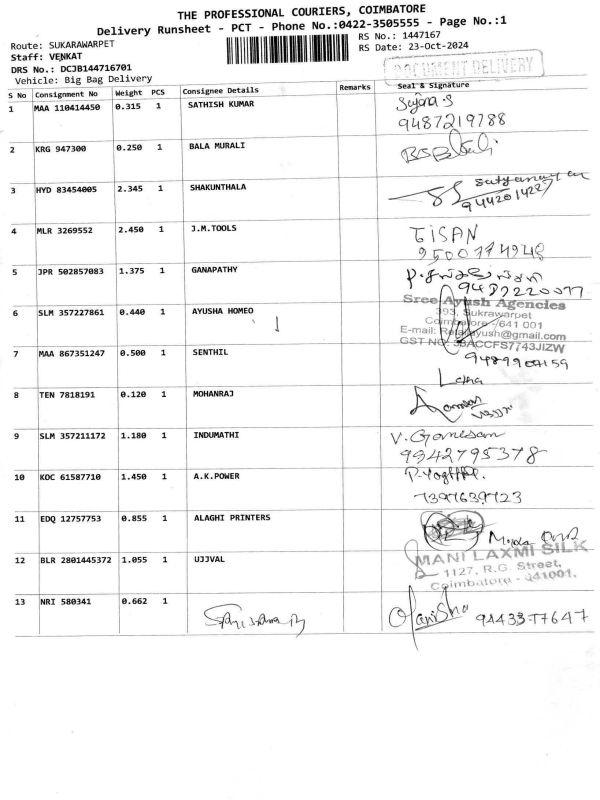 THE PROFESSIONAL COURIERS, COIMBATORE
Delivery Runsheet - PCT - Phone No.:0422-3505555 - Page No.:1
Route: SUKARAWARPET
RS No.: 1447167
Staff: VENKAT
RS Date: 23-Oct-2024
DRS No.: DCJB144716701
Vehicle: Big Bag Delivery
DOCUMENT DELIVERY
S No Consignment No Weight PCS Consignee Details Remarks Seal & Signature
1 MAA 110414450 0.315 1 SATHISH KUMAR
9487219788
2 KRG 947300 0.250 1 BALA MURALI
3 HYD 83454005 2.345 1 SHAKUNTHALA
4 MLR 3269552 2.450 1 J.M.TOOLS
5 JPR 502857083 1.375 1 GANAPATHY
Sree Ayush Agencies
6 SLM 357227861 0.440 1 AYUSHA HOMEO
393, Sukrawarpet
Coimbatore - 641 001
7 MAA 867351247 0.500 1 SENTHIL
Latha
8 TEN 7818191 0.120 1 MOHANRAJ
9 SLM 357211172 1.180 1 INDUMATHI V. Ganesan
9942795378
10 KOC 61587710 1.450 1 A.K.POWER
7397639723
11 EDQ 12757753 0.855 1 ALAGHI PRINTERS
12 BLR 2801445372 1.055 1 UJJVAL
MANI LAXMI SILK
1127, R.G. Street,
Coimbatore - 641001.
13 NRI 580341 0.662 1